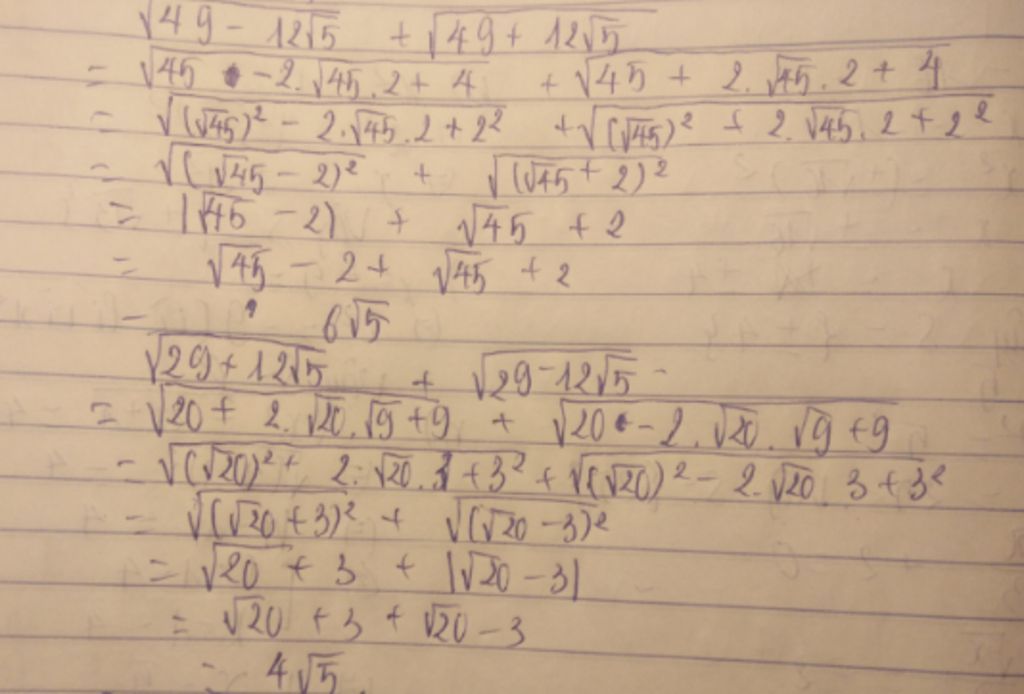 √49 - 12√5 + √49 + 12√5
= √45 - 2.√45.2 + 4 + √45 + 2.√45.2 + 4
= √(√45)² - 2.√45.2 + 2² + √(√45)² + 2.√45.2 + 2²
= √(√45 - 2)² + √(√45 + 2)²
= |√45 - 2| + √45 + 2
= √45 - 2 + √45 + 2
= 6√5
√29 + 12√5 + √29 - 12√5
= √20 + 2.√20.√9 + 9 + √20 - 2.√20.√9 + 9
= √(√20)² + 2.√20.3 + 3² + √(√20)² - 2.√20.3 + 3²
= √(√20 + 3)² + √(√20 - 3)²
= √20 + 3 + |√20 - 3|
= √20 + 3 + √20 - 3
= 4√5